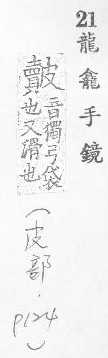 21龍龕手鏡
皾音獨弓袋
也又滑也
(皮部.p124)